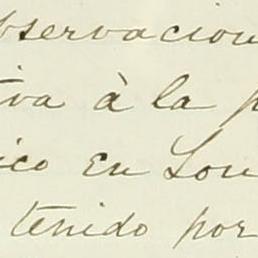 bservacion
iva à la p
ico en Lon
tenido por